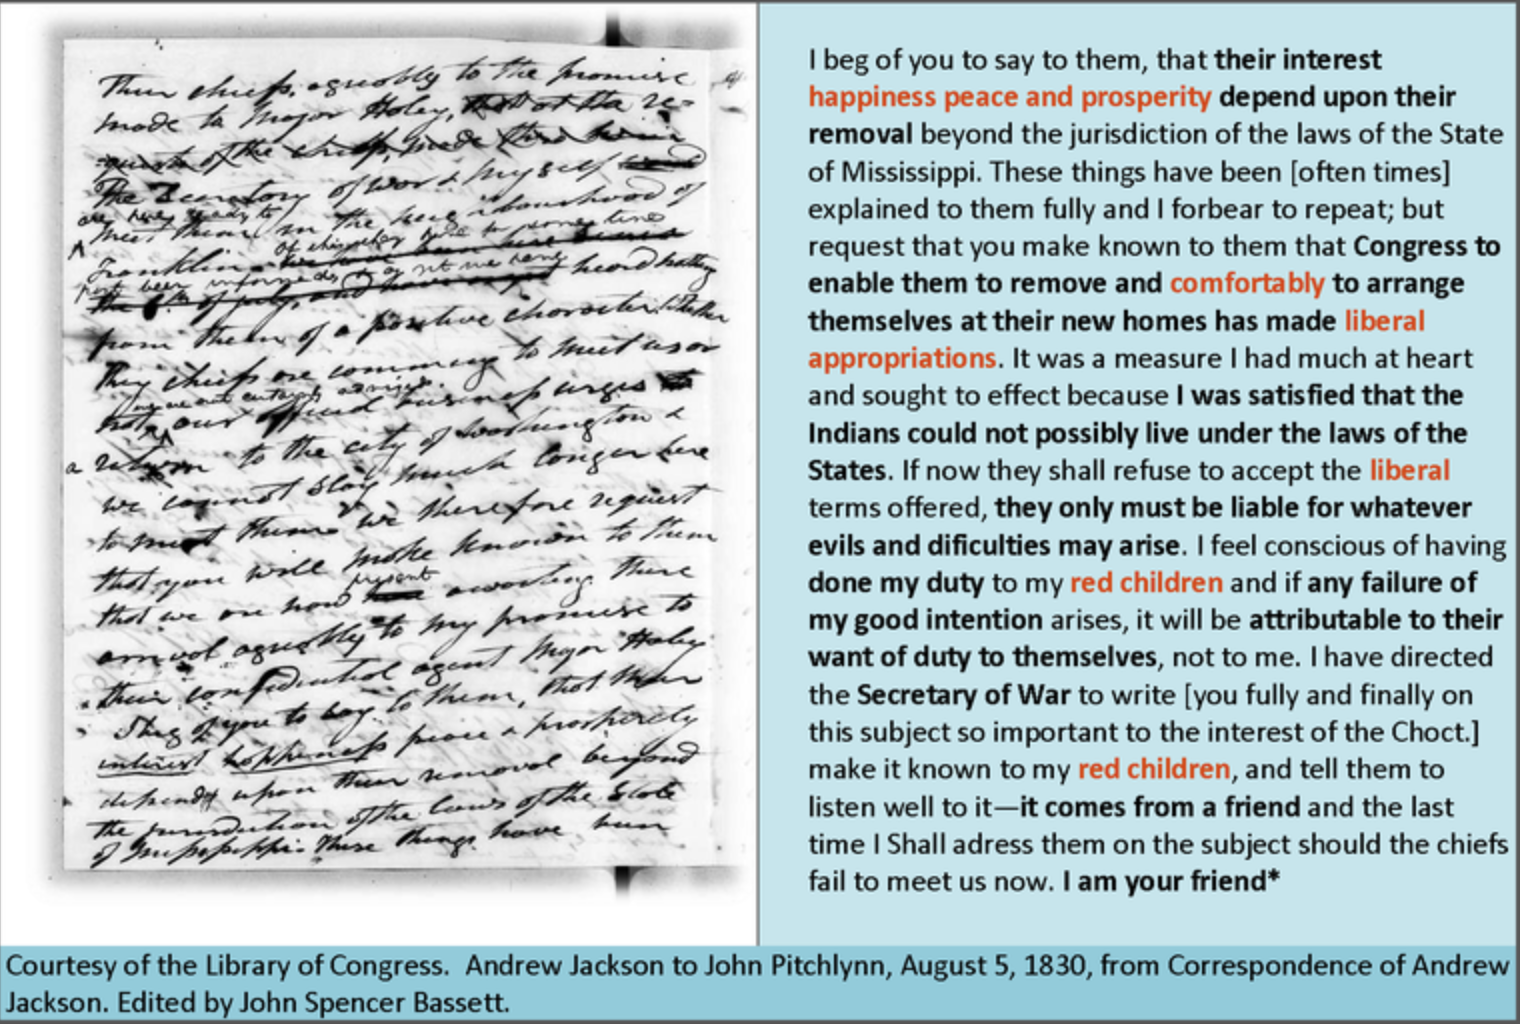 Their chiefs, agreeably to the promise
made to Major Haley, that at the re-
quest of the chiefs, made
The Secretary of war & myself
are here ready to
meet them in the neighbourhood of
Franklin
heard nothing
from them of a positive character. Whether
They chiefs are comming to meet us or
not, our official business urges
a return to the city of Washington &
we cannot stay much longer here
to meet them we therefore request
that you will make known to them
present
that we are now awaiting there
arrival agreably to my promise to
their confidential agent Major Haley
I beg of you to say to them, that their
interest happiness peace & prosperity
depends upon their removal beyond
the jurisdiction of the laws of the State
of Mississippi. These things have been
I beg of you to say to them, that their interest
happiness peace and prosperity depend upon their
removal beyond the jurisdiction of the laws of the State
of Mississippi. These things have been [often times]
explained to them fully and I forbear to repeat; but
request that you make known to them that Congress to
enable them to remove and comfortably to arrange
themselves at their new homes has made liberal
appropriations. It was a measure I had much at heart
and sought to effect because I was satisfied that the
Indians could not possibly live under the laws of the
States. If now they shall refuse to accept the liberal
terms offered, they only must be liable for whatever
evils and dificulties may arise. I feel conscious of having
done my duty to my red children and if any failure of
my good intention arises, it will be attributable to their
want of duty to themselves, not to me. I have directed
the Secretary of War to write [you fully and finally on
this subject so important to the interest of the Choct.]
make it known to my red children, and tell them to
listen well to it—it comes from a friend and the last
time I Shall adress them on the subject should the chiefs
fail to meet us now. I am your friend*
Courtesy of the Library of Congress. Andrew Jackson to John Pitchlynn, August 5, 1830, from Correspondence of Andrew
Jackson. Edited by John Spencer Bassett.